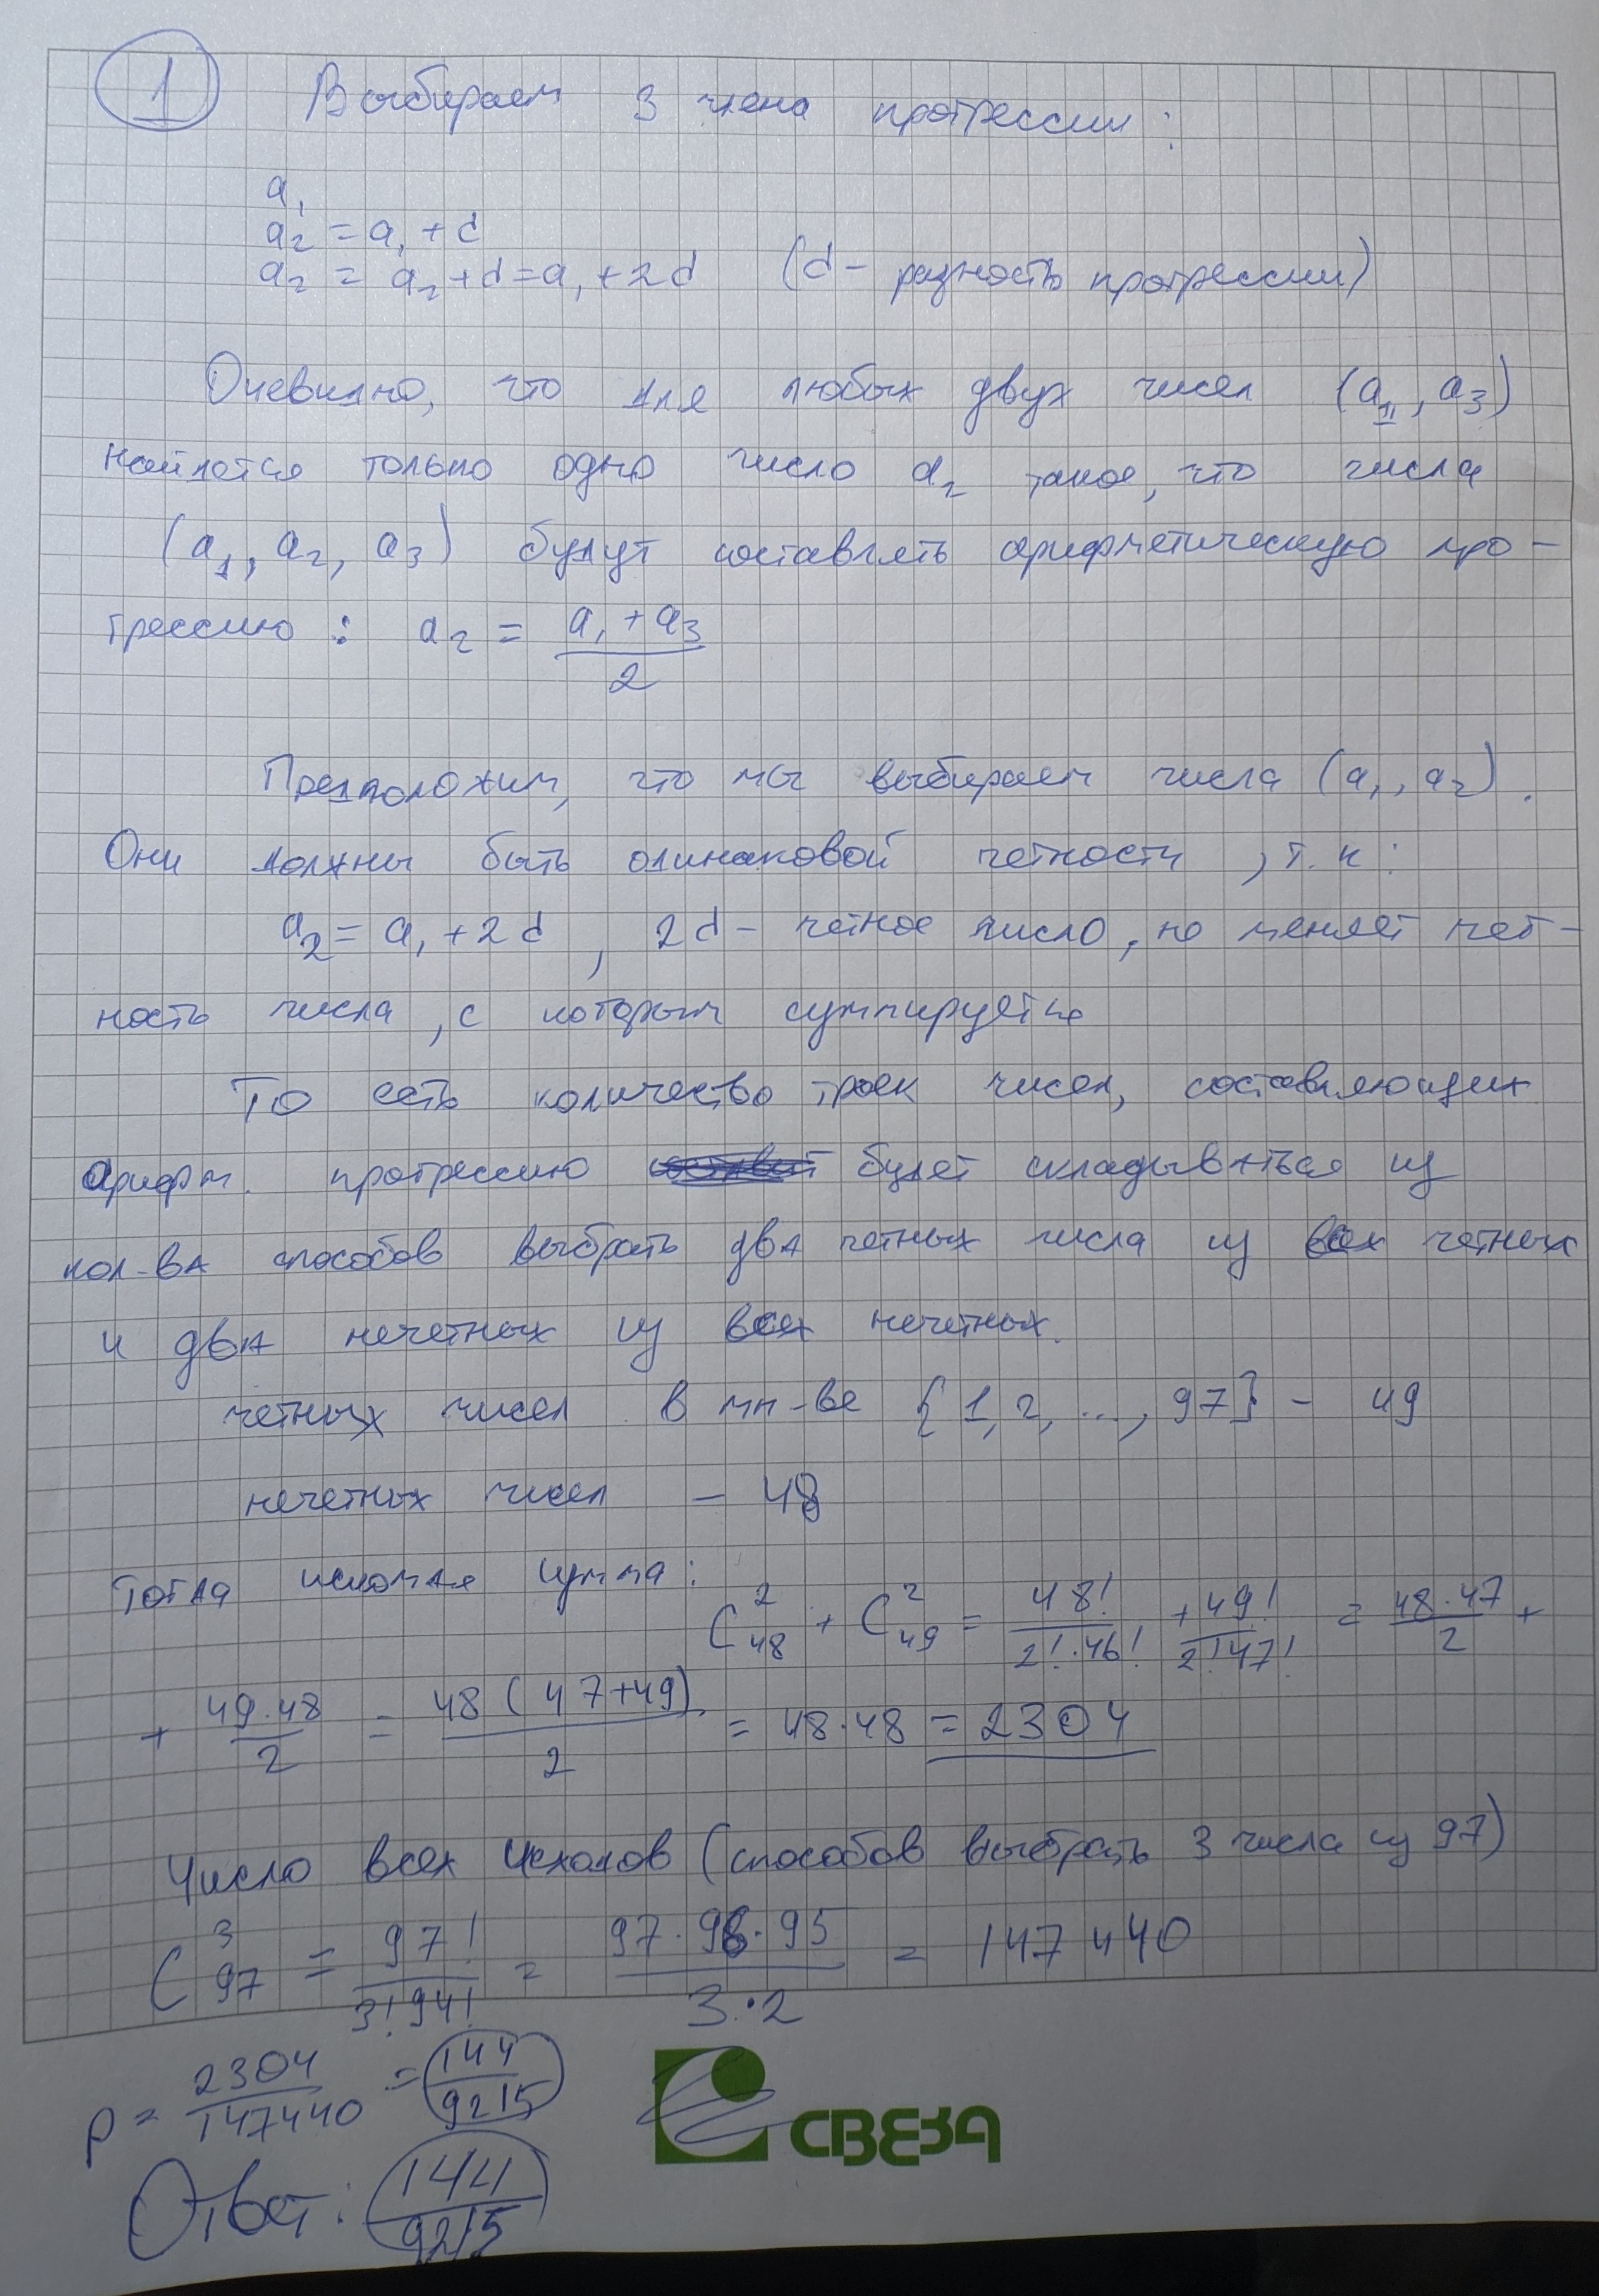 1 Выбираем 3 члена прогрессии:
a₁
a₂ = a₁ + d
a₂ = a₂ + d = a₁ + 2d (d – разность прогрессии)
Очевидно, что для любых двух чисел (a₁, a₃)
найдется только одно число a₂ такое, что числа
(a₁, a₂, a₃) будут составлять арифметическую про-
грессию: a₂ = (a₁ + a₃)/2
Предположим, что мы выбираем числа (a₁, a₂).
Они должны быть одинаковой четности, т.к:
a₂ = a₁ + 2d, 2d – четное число, не меняет чет-
ность числа, с которым суммируется
То есть количество троек чисел, составляющих
арифм. прогрессию будет складываться из
кол-ва способов выбрать два четных числа из всех четных
и два нечетных из всех нечетных.
четных чисел в мн-ве {1, 2, ..., 97} – 49
нечетных чисел – 48
Тогда искомая сумма:
C²₄₈ + C²₄₉ = 48!/(2!·46!) + 49!/(2!47!) = 48·47/2 +
+ 49·48/2 = 48(47+49)/2 = 48·48 = 2304
Число всех исходов (способов выбрать 3 числа из 97)
C³₉₇ = 97!/(3!94!) = 97·96·95/(3·2) = 147440
p = 2304/147440 = 144/9215
Ответ: 144/9215
СВЕЗА